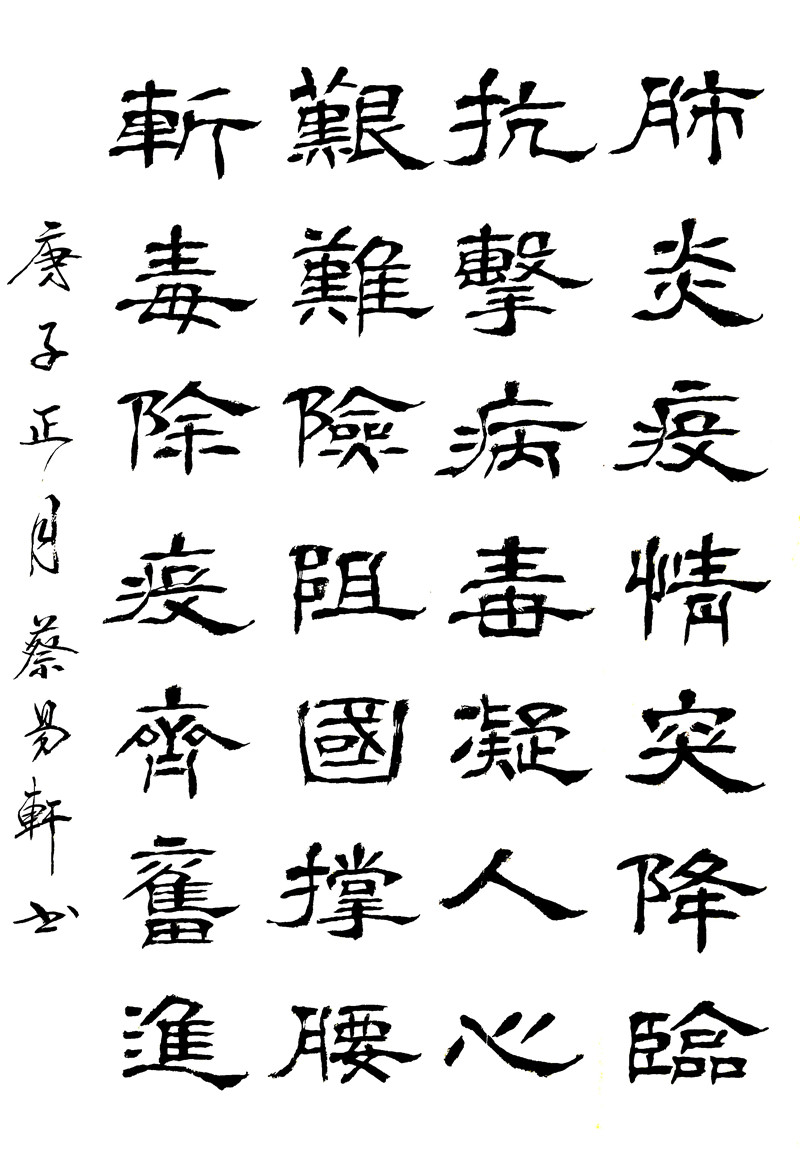 肺炎疫情突降臨
抗擊病毒凝人心
艱難險阻國撐腰
斬毒除疫齊奮進
庚子正月蔡易軒书